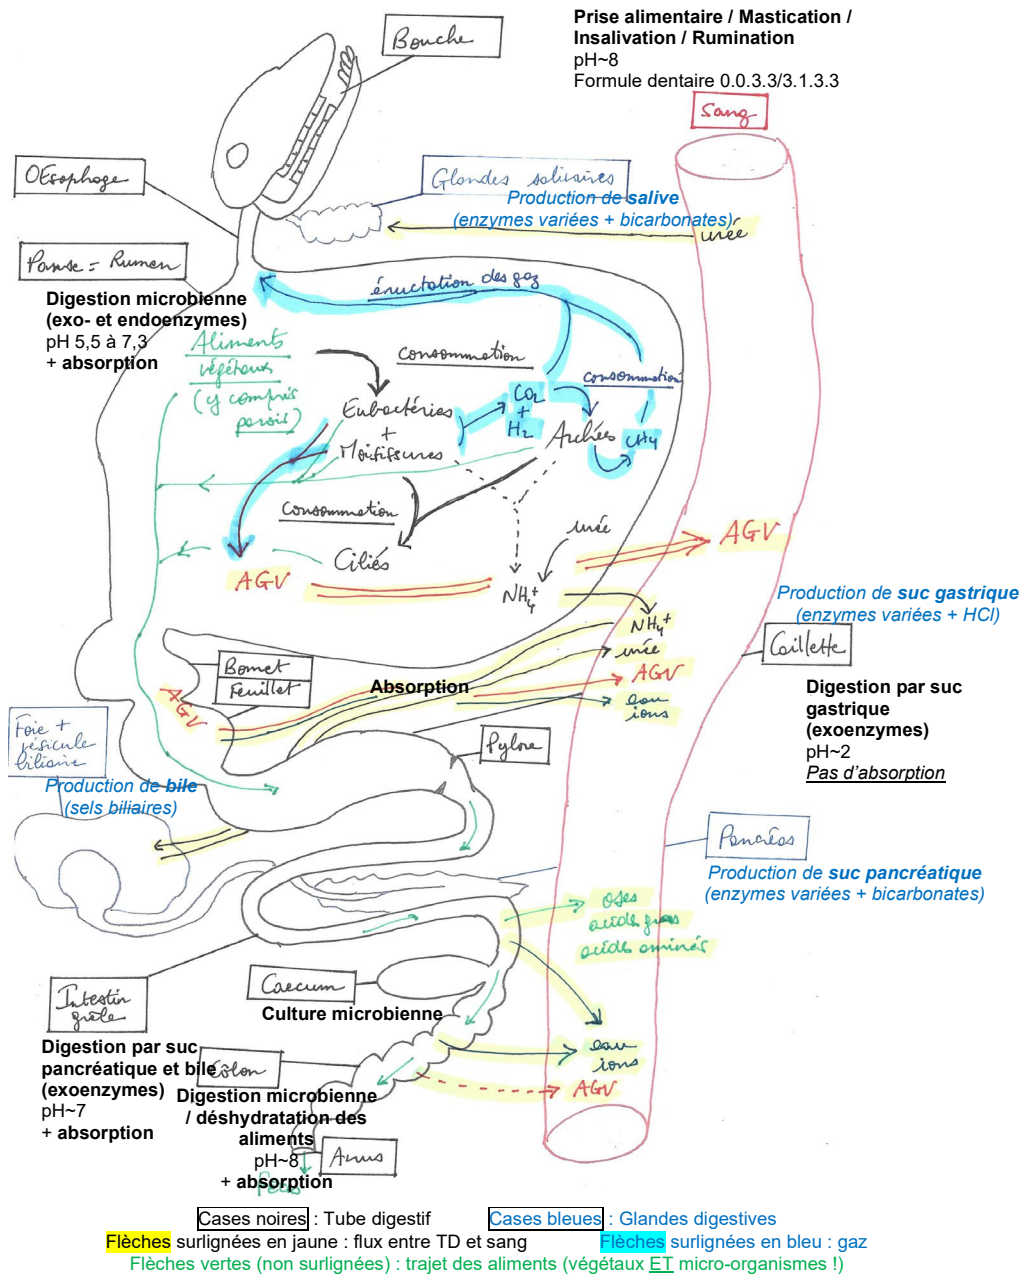 Bouche
Prise alimentaire / Mastication /
Insalivation / Rumination
pH~8
Formule dentaire 0.0.3.3/3.1.3.3
Sang
OEsophage
Glandes salivaires
Production de salive
(enzymes variées + bicarbonates)
urée
Panse = Rumen
éructation des gaz
Digestion microbienne
(exo- et endoenzymes)
pH 5,5 à 7,3
+ absorption
Aliments
végétaux
(y compris
parois)
consommation
consommation
Eubactéries
+
Moisissures
CO2
+
H2
Archées
CH4
consommation
urée
Ciliés
AGV
NH4+
AGV
Production de suc gastrique
(enzymes variées + HCl)
NH4+
urée
AGV
eau
ions
Caillette
Bonnet
Feuillet
Absorption
AGV
Digestion par suc
gastrique
(exoenzymes)
pH~2
Pas d'absorption
Foie +
vésicule
biliaire
Pylore
Production de bile
(sels biliaires)
Pancréas
Production de suc pancréatique
(enzymes variées + bicarbonates)
oses
acides gras
acides aminés
Caecum
Culture microbienne
Intestin
grêle
Digestion par suc
pancréatique et bile
(exoenzymes)
pH~7
+ absorption
eau
ions
AGV
Côlon
Digestion microbienne
/ déshydratation des
aliments
pH~8
+ absorption
Anus
Fèces
Cases noires : Tube digestif
Cases bleues : Glandes digestives
Flèches surlignées en jaune : flux entre TD et sang
Flèches surlignées en bleu : gaz
Flèches vertes (non surlignées) : trajet des aliments (végétaux ET micro-organismes !)